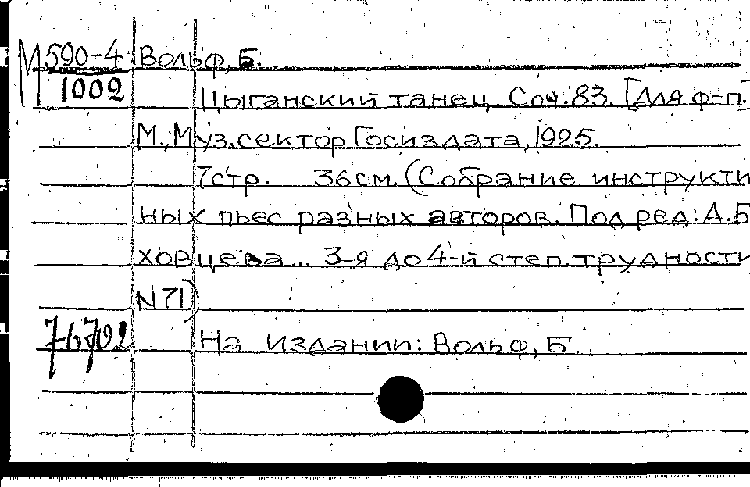 М 590-4 Вольф, Б.
1002
Цыганский танец. Соч. 83. [Для ф-п.
М., Муз. сектор Госиздата, 1925.
7 стр. 36 см. (Собрание инструкти
ных пьес разных авторов. Под ред: А. Б
ховцева... 3-я до 4-й степ. трудности
N 71)
76702
На издании: Вольф, Б.